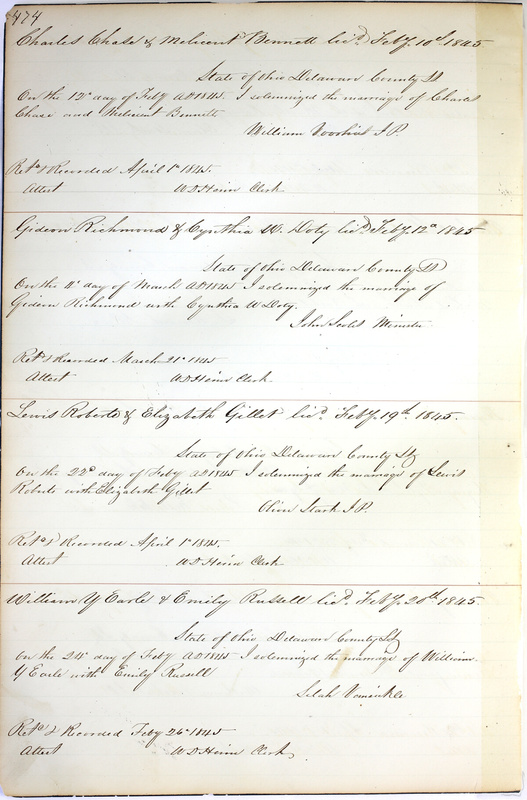 474
Charles Chase & Melucent Bennett licd. Feby. 10th. 1845
State of Ohio Delaware County SS
On the 12th day of Feby AD 1845 I solemnized the marriage of Charles
Chase and Melucent Bennett
William Voorhies J. P.
Retd & Recorded April 1st 1845.
Attest W D Heim Clerk
Gideon Richmond & Cynthia W. Doty licd Feby. 12th 1845
State of Ohio Delaware County SS
On the day of March AD 1845 I solemnized the marriage of
Gideon Richmond with Cynthia W Doty.
John Minister
Retd & Recorded March 21st 1845
Attest W D Heim Clerk.
Lewis Roberts & Elizabeth Gillet licd. Feby. 19th. 1845.
State of Ohio Delaware County SS
On the 22d day of Feby AD 1845 I solemnized the marriage of Lewis
Roberts with Elizabeth Gillet
Oliver Stark J. P.
Retd & Recorded April 1st 1845.
Attest W D Heim Clerk
William Y Earle & Emily Russell licd. Feby. 20th. 1845.
State of Ohio Delaware County SS
On the 24th day of Feby AD 1845 I solemnized the marriage of William
Y Earle with Emily Russell
Selah
Retd & Recorded Feby 26th 1845
Attest W D Heim Clerk